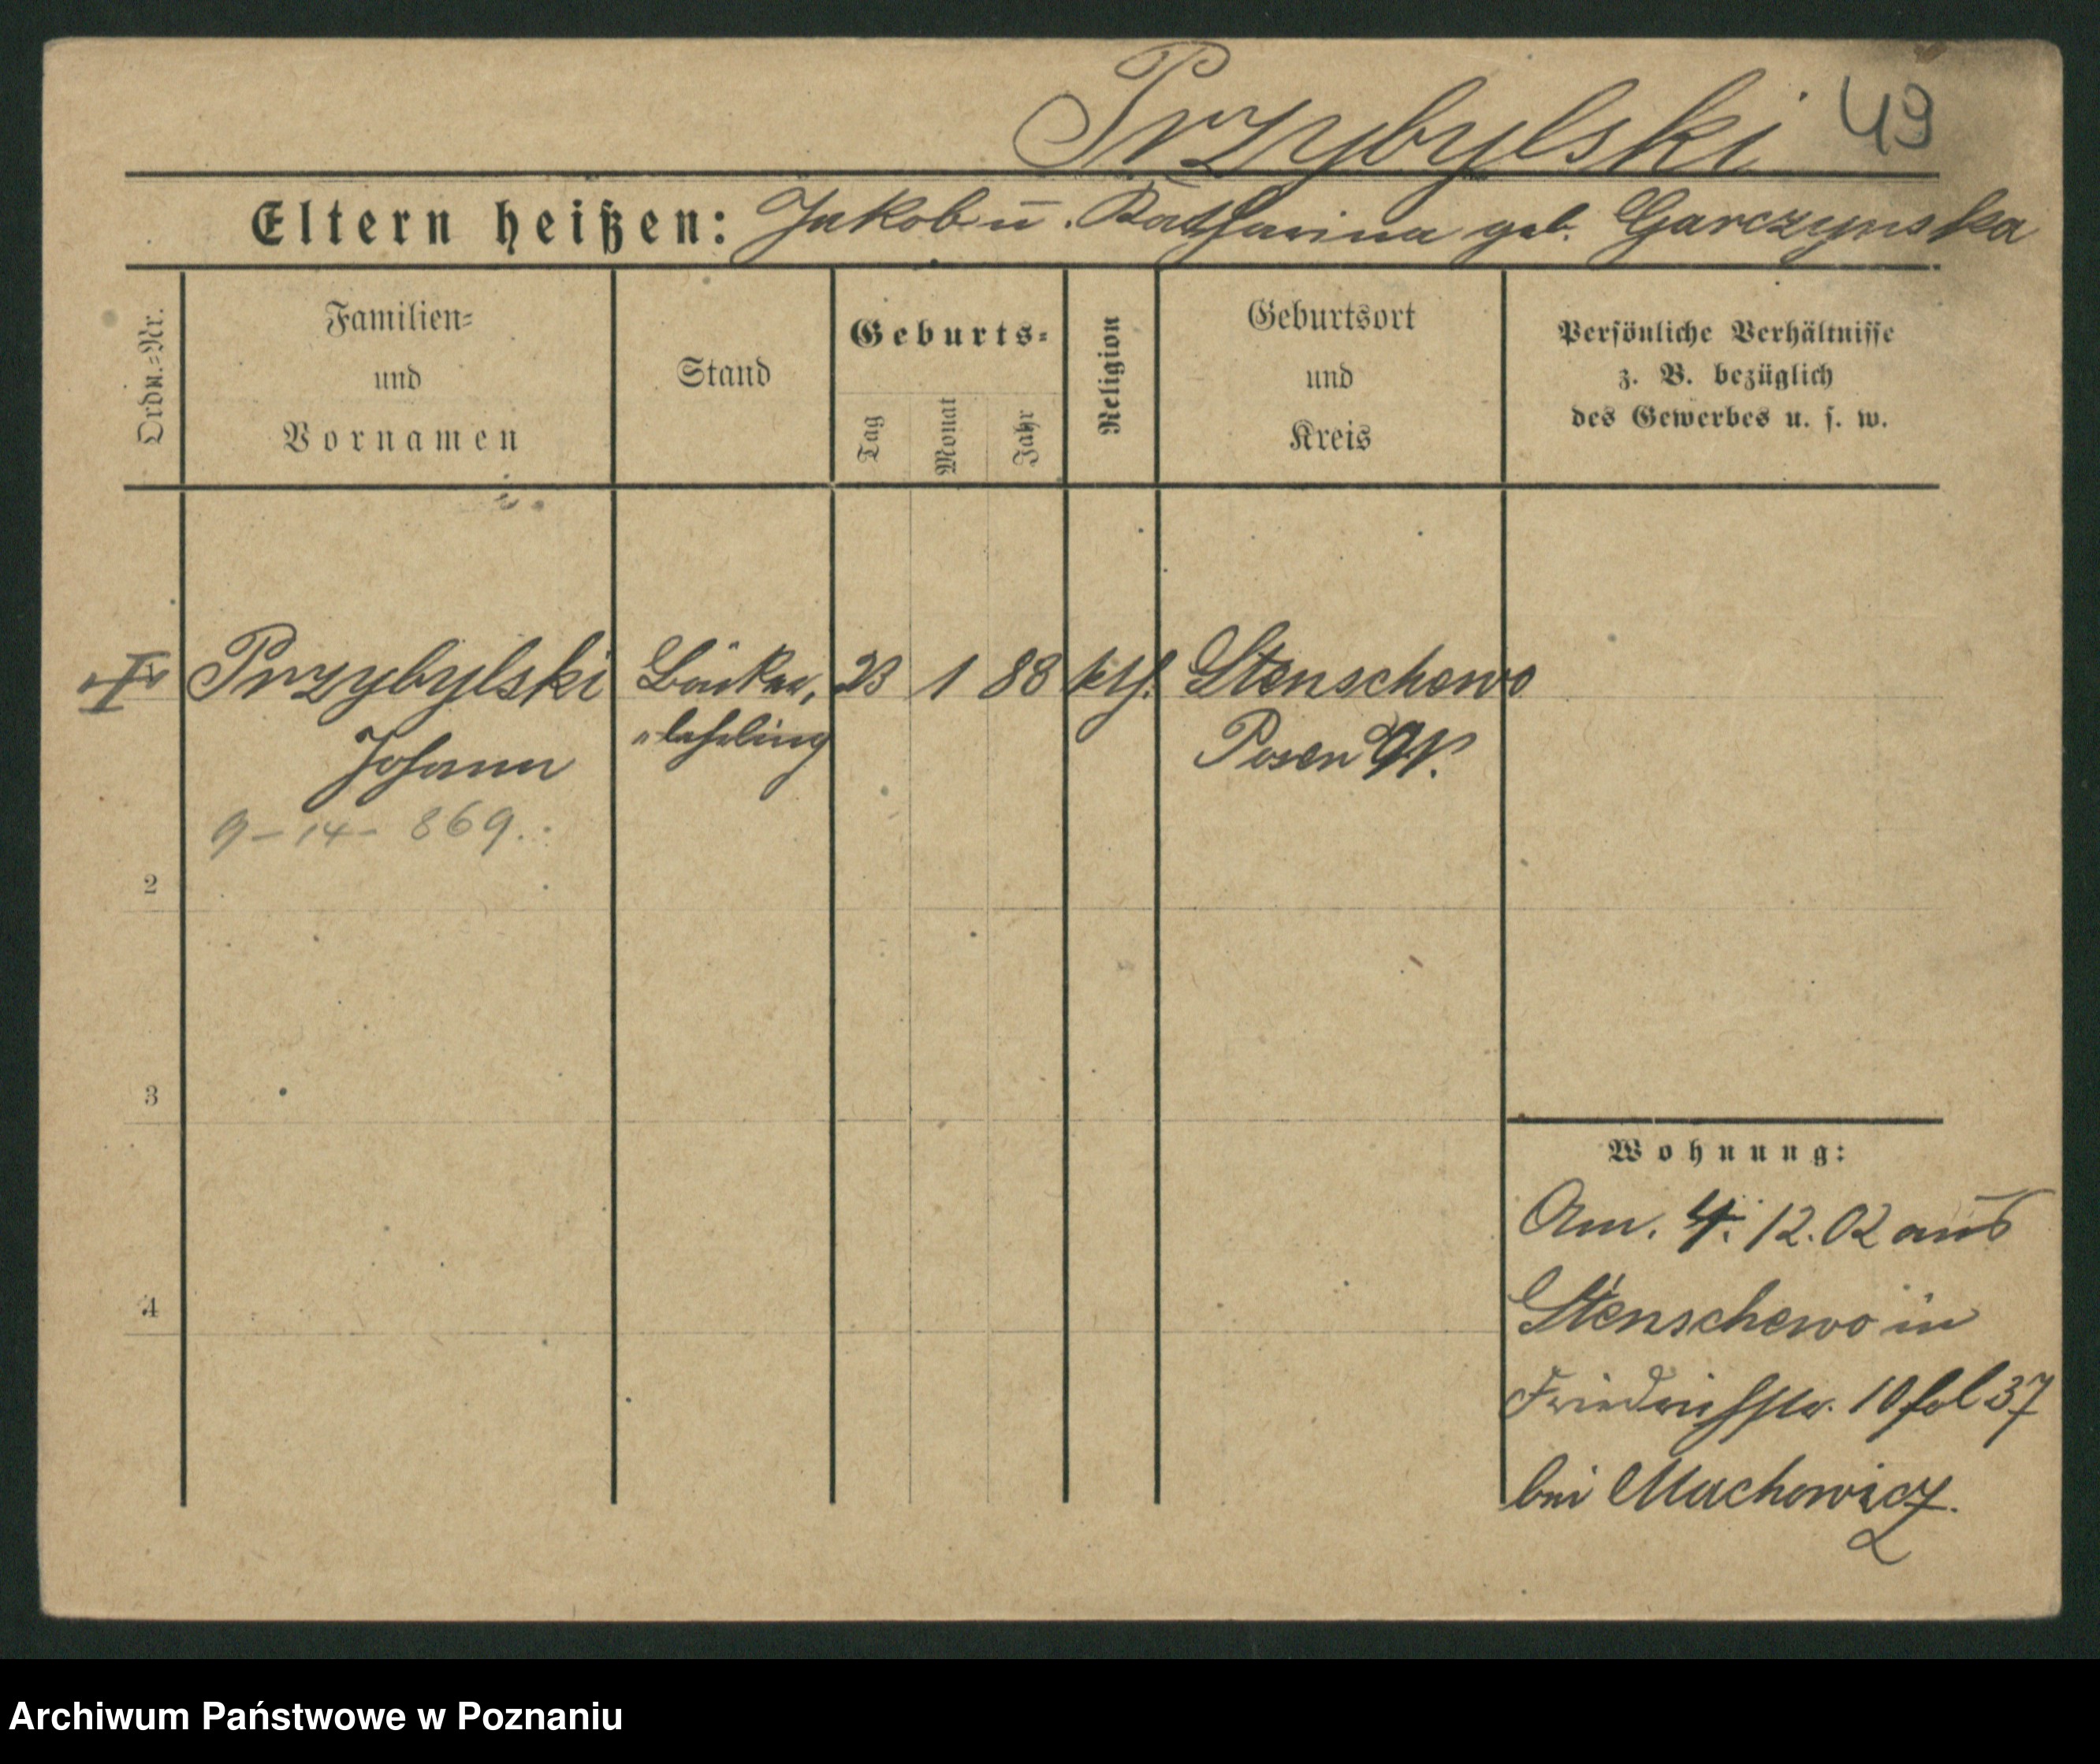 Przybylski 49
Eltern heißen: Jakob u. Katharina geb. Garczynska
Ordn.-Nr.
Familien-
und
Vornamen
Stand
Geburts-
Tag
Monat
Jahr
Religion
Geburtsort
und
Kreis
Persönliche Verhältnisse
z. B. bezüglich
des Gewerbes u. s. w.
Przybylski Bäcker, 23 1 88 kth. Stenschewo
Johann "lehrling Posen W.
9-14-869.
2
3
4
Wohnung:
Am. 4. 12. 02 aus
Stenschewo in
Friedrichstr. 10 fol 37
bei Muchowicz.
Archiwum Państwowe w Poznaniu